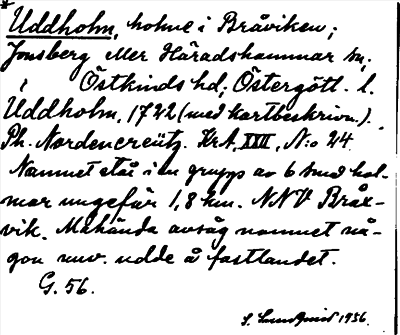 Uddholm, holme i Bråviken;
Jonsberg eller Häradshammar sn,
i Östkinds hd, Östergötl. l.
Uddholm, 1722 (med kartbeskrivn.).
Ph. Nordencreütz. KrA, XXII, N:o 24.
Namnet står i en grupp av 6 små hol-
mar ungefär 1,8 km. NNV Bråx-
vik. Måhända avsåg namnet nå-
gon nuv. udde å fastlandet.
G. 56.
S. Lundqvist 1936.